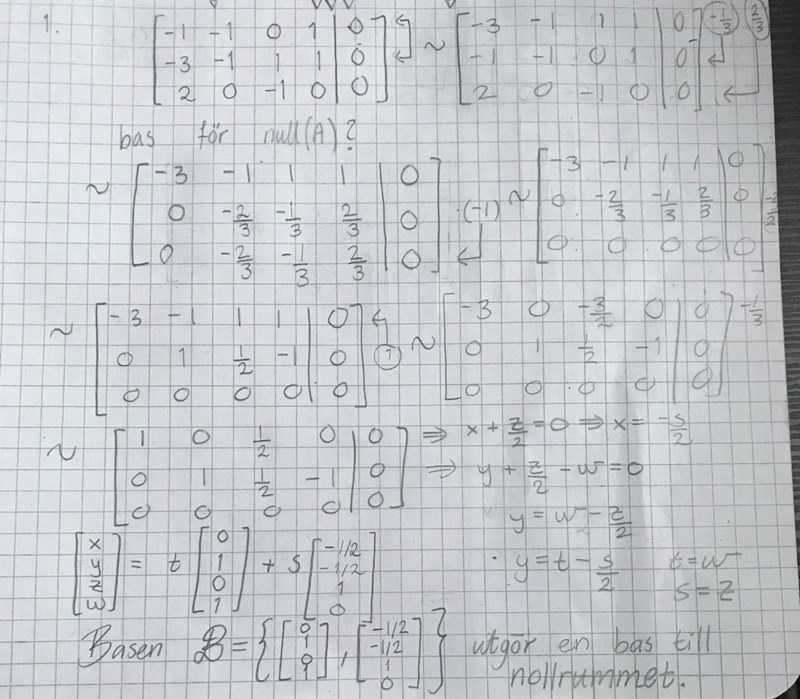 1. [-1 -1 0 1 | 0; -3 -1 1 1 | 0; 2 0 -1 0 | 0] ~ [-3 -1 1 1 | 0; -1 -1 0 1 | 0; 2 0 -1 0 | 0] -1/3 2/3
bas för null(A)?
~ [-3 -1 1 1 | 0; 0 -2/3 -1/3 2/3 | 0; 0 -2/3 -1/3 2/3 | 0] (-1) ~ [-3 -1 1 1 | 0; 0 -2/3 -1/3 2/3 | 0; 0 0 0 0 | 0]
~ [-3 -1 1 1 | 0; 0 1 1/2 -1 | 0; 0 0 0 0 | 0] 1 ~ [-3 0 -3/2 0 | 0; 0 1 1/2 -1 | 0; 0 0 0 0 | 0] -1/3
~ [1 0 1/2 0 | 0; 0 1 1/2 -1 | 0; 0 0 0 0 | 0] ⇒ x + z/2 = 0 ⇒ x = -s/2
⇒ y + z/2 - w = 0
y = w - z/2
y = t - s/2 t = w
s = z
[x; y; z; w] = t [0; 1; 0; 1] + s [-1/2; -1/2; 1; 0]
Basen B = {[0; 1; 0; 1], [-1/2; -1/2; 1; 0]} utgör en bas till
nollrummet.